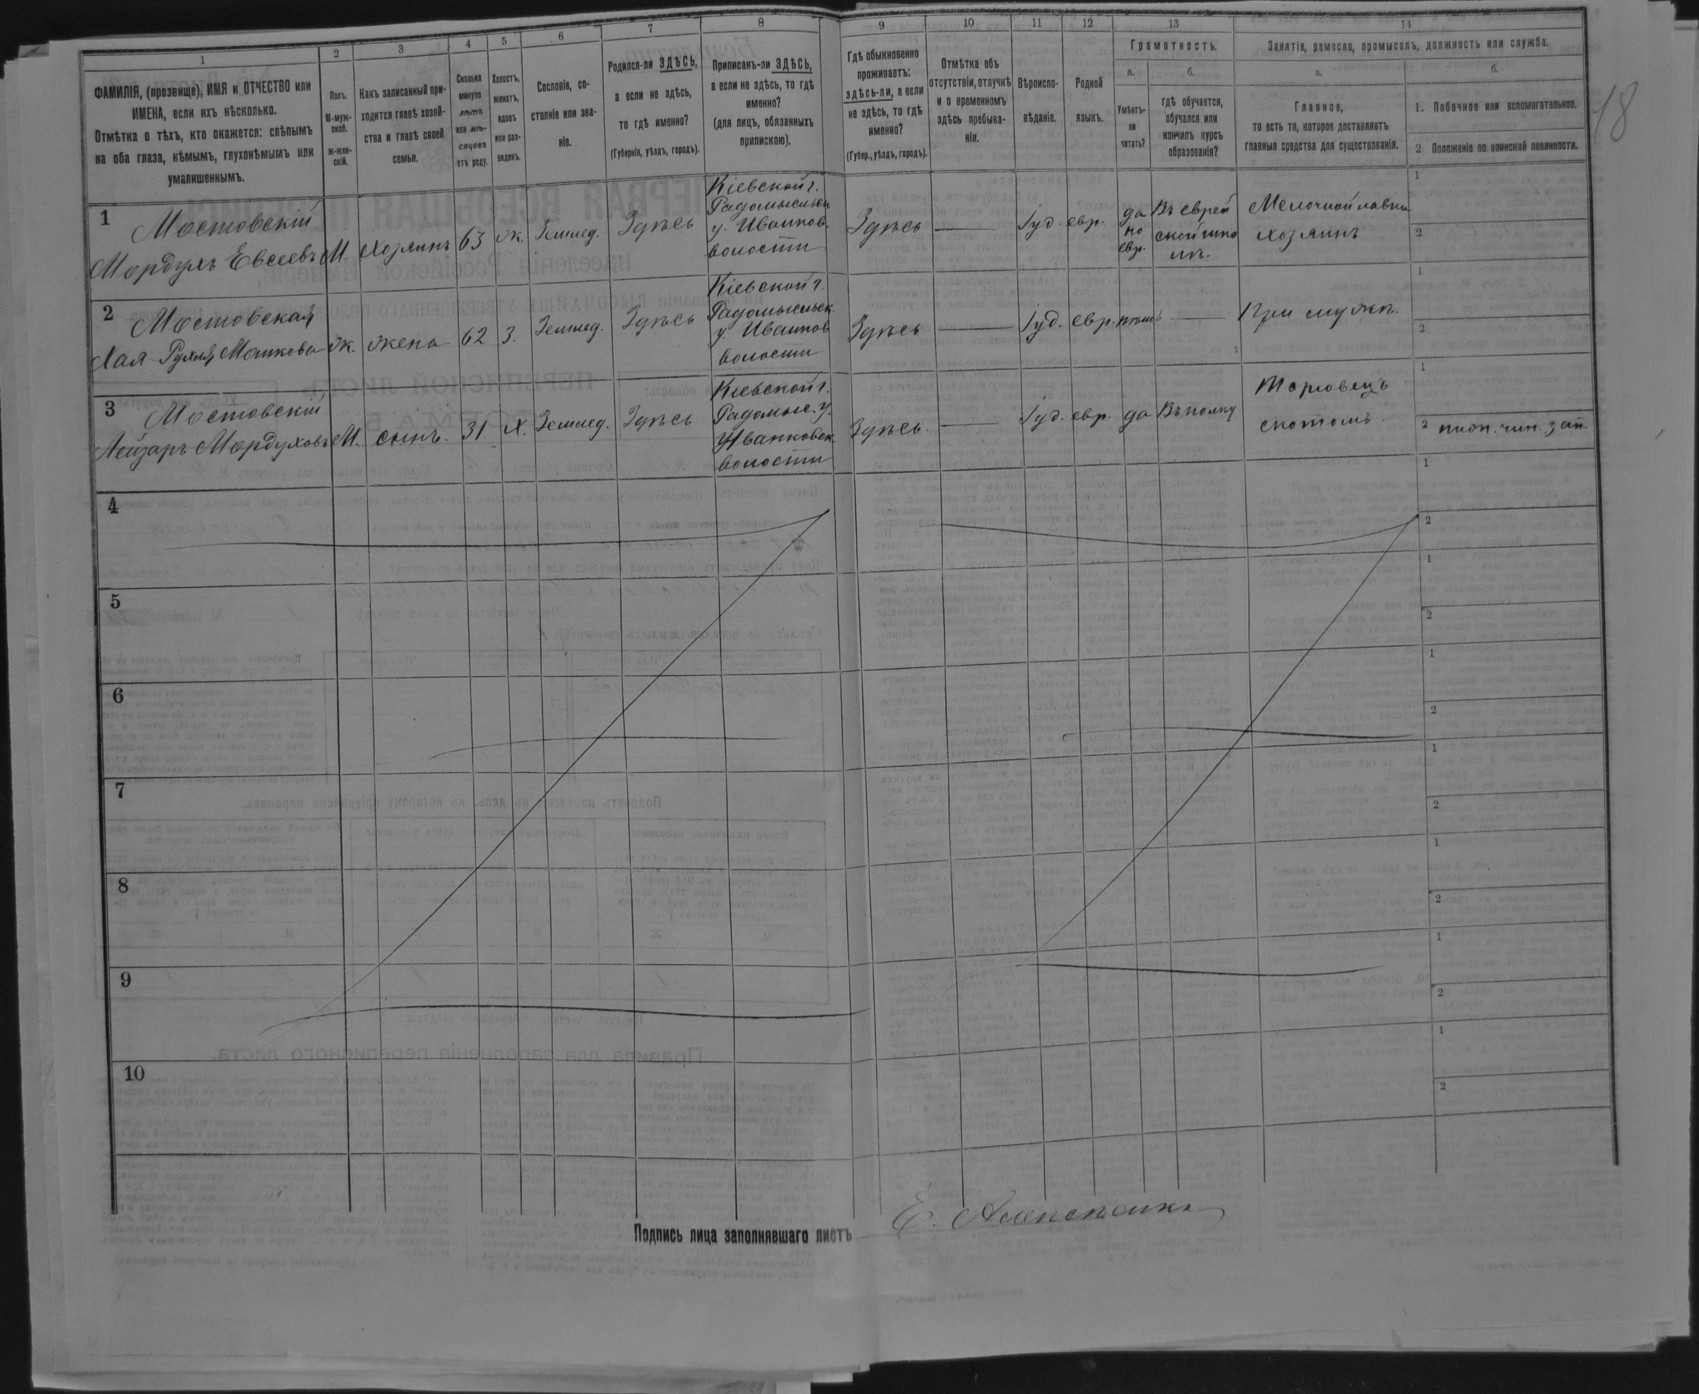 1
2
3
4
5
6
7
8
9
10
11
12
13
14
ФАМИЛІЯ, (прозвище), ИМЯ и ОТЧЕСТВО или
ИМЕНА, если ихъ нѣсколько.
Отмѣтка о тѣхъ, кто окажется: слѣпымъ
на оба глаза, нѣмымъ, глухонѣмымъ или
умалишеннымъ.
Полъ.
М-муж-
ской.
Ж-жен-
скій.
Какъ записанный при-
ходится главѣ хозяй-
ства и главѣ своей
семьи.
Сколько
минуло
лѣтъ
или мѣ-
сяцевъ
отъ роду.
Холостъ,
женатъ,
вдовъ
или раз-
веденъ.
Сословіе, со-
стояніе или зва-
ніе.
Родился-ли ЗДѢСЬ,
а если не здѣсь,
то гдѣ именно?
(Губернія, уѣздъ, городъ).
Приписанъ-ли ЗДѢСЬ,
а если не здѣсь, то гдѣ
именно?
(для лицъ, обязанныхъ
припискою).
Гдѣ обыкновенно
проживаетъ:
здѣсь-ли, а если
не здѣсь, то гдѣ
именно?
(Губер., уѣздъ, городъ).
Отмѣтка объ
отсутствіи, отлучкѣ
и о временномъ
здѣсь пребыва-
ніи.
Вѣроиспо-
вѣданіе.
Родной
языкъ.
Грамотность.
а.
Умѣетъ-
ли
читать?
б.
гдѣ обучается,
обучался или
кончилъ курсъ
образованія?
Занятіе, ремесло, промыселъ, должность или служба.
а.
Главное,
то есть то, которое доставляетъ
главныя средства для существованія.
б.
1. Побочное или вспомогательное.
2 Положеніе по воинской повинности.
18
1
Мостовскій
Мордухъ Евсеевъ
М.
Хозяинъ
63
ж.
Землед.
Здѣсь
Кіевской г.
Радомысльск
у. Иванков.
волости
Здѣсь
Іуд.
евр.
да
по
евр.
Въ еврей
ской шко
лѣ.
Мелочной лавки
хозяинъ
1
2
2
Мостовская
Хая-Рухля Мошкова
Ж.
жена
62
З.
Землед.
Здѣсь
Кіевской г.
Радомысльск.
у. Иванков
волости
Здѣсь
Іуд.
евр.
нѣтъ
При мужѣ.
1
2
3
Мостовскій
Лейзаръ Мордуховъ
М.
сынъ.
31
Х.
Землед.
Здѣсь
Кіевской г.
Радомыс. у.
Иванковск.
волости
Здѣсь.
Іуд.
евр.
да
Въ полку
Торговецъ
скотомъ.
1
2
нижн. чин. зап.
4
1
2
5
1
2
6
1
2
7
1
2
8
1
2
9
1
2
10
1
2
Подпись лица заполнявшаго листъ